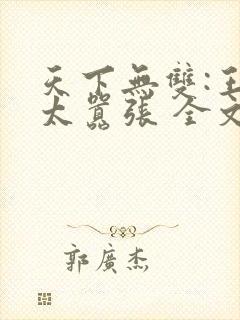 天下無雙:王
太囂張 全文
郭廣杰